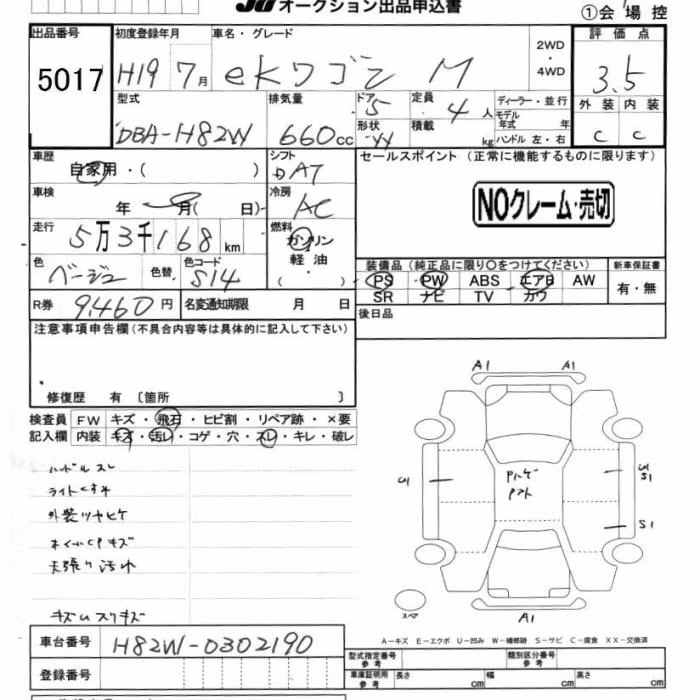 オークション出品申込書
①会場控
出品番号
5017
初度登録年月
H19 7月
車名・グレード
eKワゴン M
2WD
・
4WD
評価点
3.5
型式
DBA-H82W
排気量
660cc
ドア
5
形状
定員
4人
積載
kg
ディーラー・並行
モデル年式 年
ハンドル 左・右
外装 内装
C C
車歴
自家用・( )
シフト
DAT
セールスポイント (正常に機能するものに限ります)
NOクレーム・売切
車検
年 月( 日)
冷房
AC
走行
5万3千168km
燃料
ガソリン
軽油
( )
色
ベージュ
色替
色コード
S14
装備品 (純正品に限り○をつけてください)
新車保証書
PS PW ABS エアB AW
SR ナビ TV カワ
有・無
R券
9,460円
名変通知期限 月 日
後日品
注意事項申告欄(不具合内容等は具体的に記入して下さい)
修復歴 有 〔箇所 〕
検査員 FW キズ・飛石・ヒビ割・リペア跡・×要
記入欄 内装 キズ・汚レ・コゲ・穴・スレ・キレ・破レ
ハンドルスレ
ライトくすみ
外装ツヤヒケ
キズ
天張り汚れ
キズUスリキズ
A1 A1
U1
U1
S1
S1
A1
スペア
A-キズ E-エクボ U-凹み W-補修跡 S-サビ C-腐食 XX-交換済
車台番号
H82W-0302190
登録番号
型式指定番号
参考
類別区分番号
参考
車庫証明用
参考
長さ cm 幅 cm 高さ cm